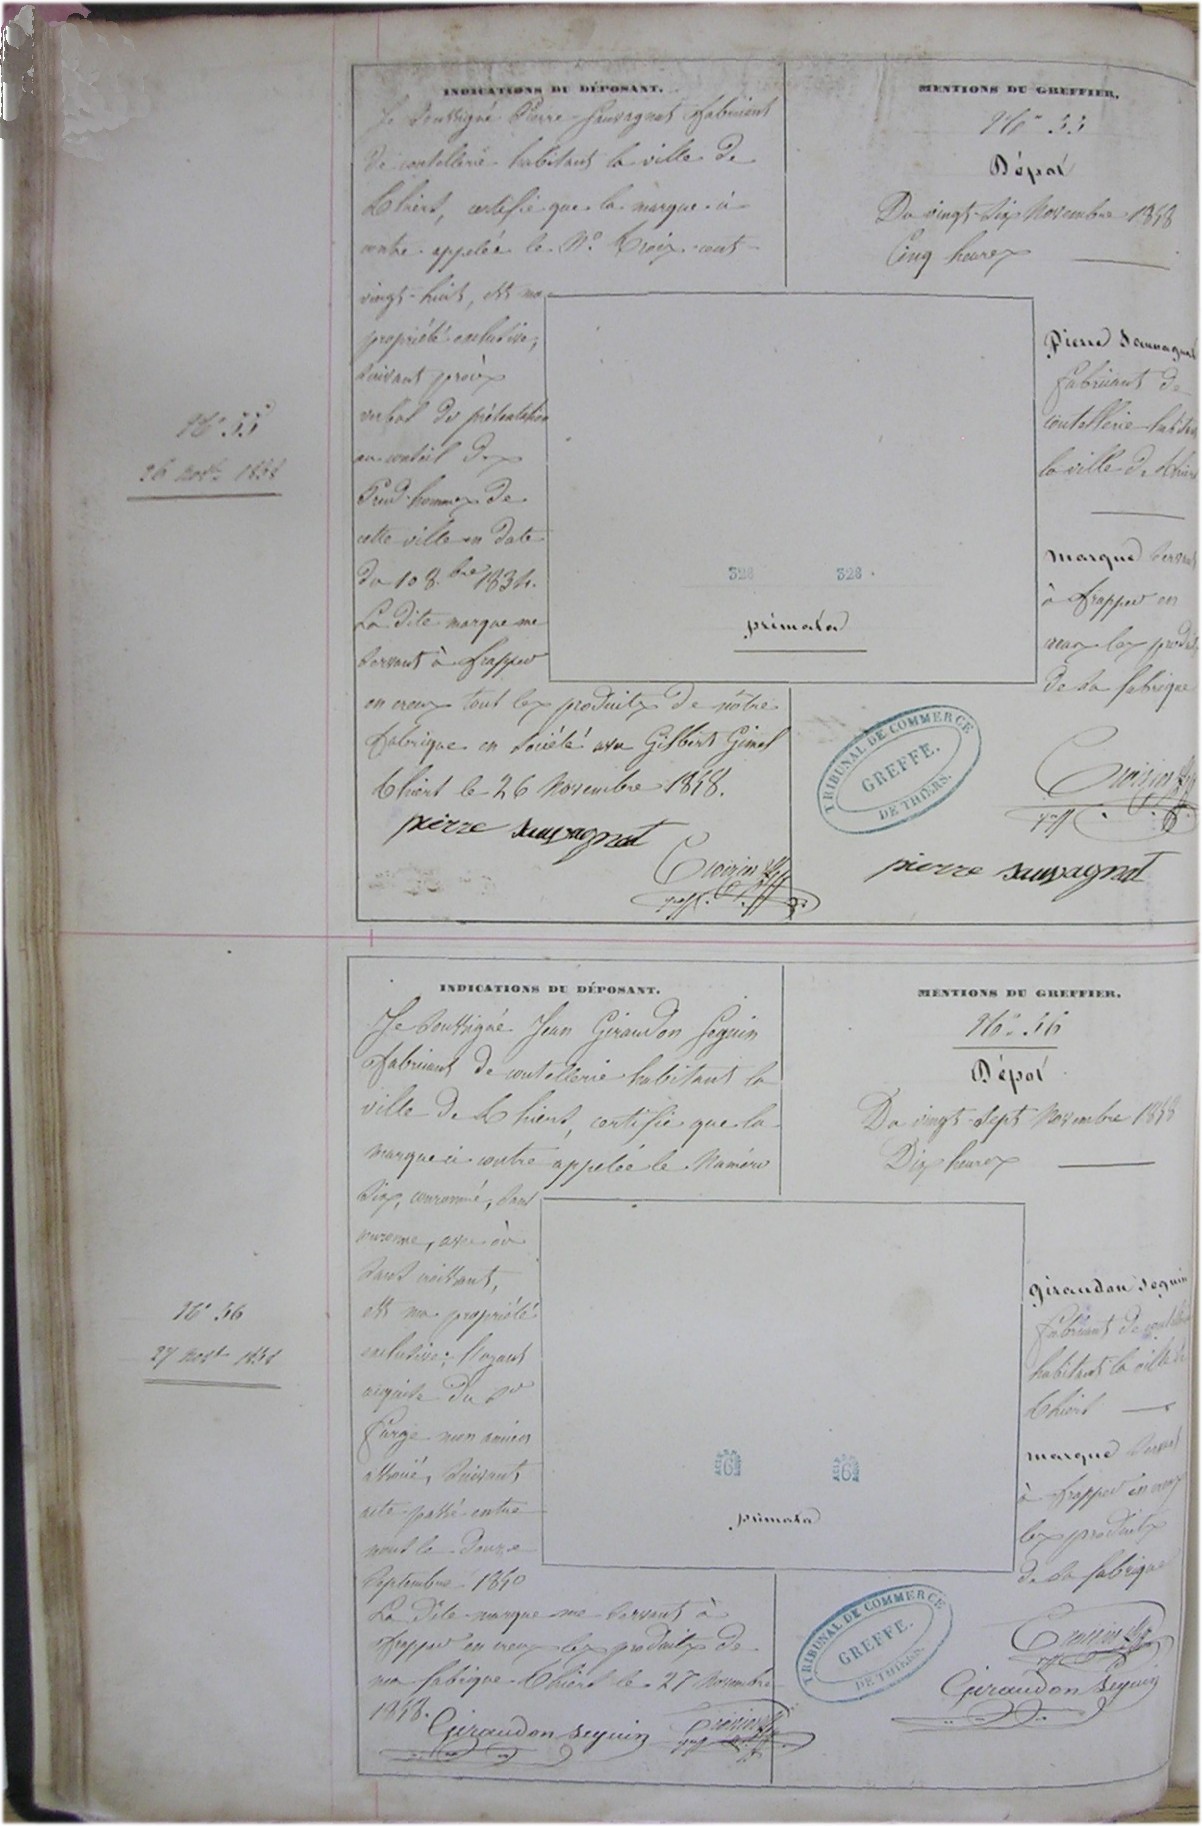 INDICATIONS DU DÉPOSANT.
Je soussigné Pierre Sauvagnat fabricant
de coutellerie habitant la ville de
Thiers, certifie que la marque ci
contre appelée le N.º Trois cent
vingt-huit, est ma
propriété exclusive,
suivant procès
verbal de présentation
au conseil des
Prud'hommes de
cette ville en date
du 10 8.bre 1834.
La dite marque me
servant à frapper
en creux tout les produits de nôtre
fabrique en société avec Gilbert Gimel
Thiers le 26 Novembre 1858.
pierre sauvagnat
MENTIONS DU GREFFIER.
Nº 55
Dépôt
Du vingt-six Novembre 1858
Cinq heures
Pierre Sauvagnat
fabricant de
coutellerie
la ville de Thiers
marque servant
à frapper en
creux les produits
de sa fabrique
328 328
primata
TRIBUNAL DE COMMERCE
GREFFE.
DE THIERS.
pierre sauvagnat
Nº 55
26 novb. 1858
INDICATIONS DU DÉPOSANT.
Je soussigné Jean Giraudon Seguin
fabricant de coutellerie habitant la
ville de Thiers, certifie que la
marque ci contre appelée le Numéro
six, couronné, sous
couronne, avec
sans croissant,
est ma propriété
exclusive; l'ayant
acquise du Sr
Farge mon ancien
associé, suivant
acte passé entre
nous le douze
Septembre 1850
La dite marque me servant à
frapper en creux les produits de
ma fabrique Thiers le 27 Novembre
1858.
Giraudon Seguin
MENTIONS DU GREFFIER.
Nº 56
Dépôt
Du vingt-sept Novembre 1858
Dix heures
Giraudon Seguin
fabricant de
habitant la ville de
Thiers
marque servant
à frapper en creux
les produits
de sa fabrique
6 6
primata
TRIBUNAL DE COMMERCE
GREFFE.
DE THIERS.
Giraudon Seguin
Nº 56
27 novb. 1858